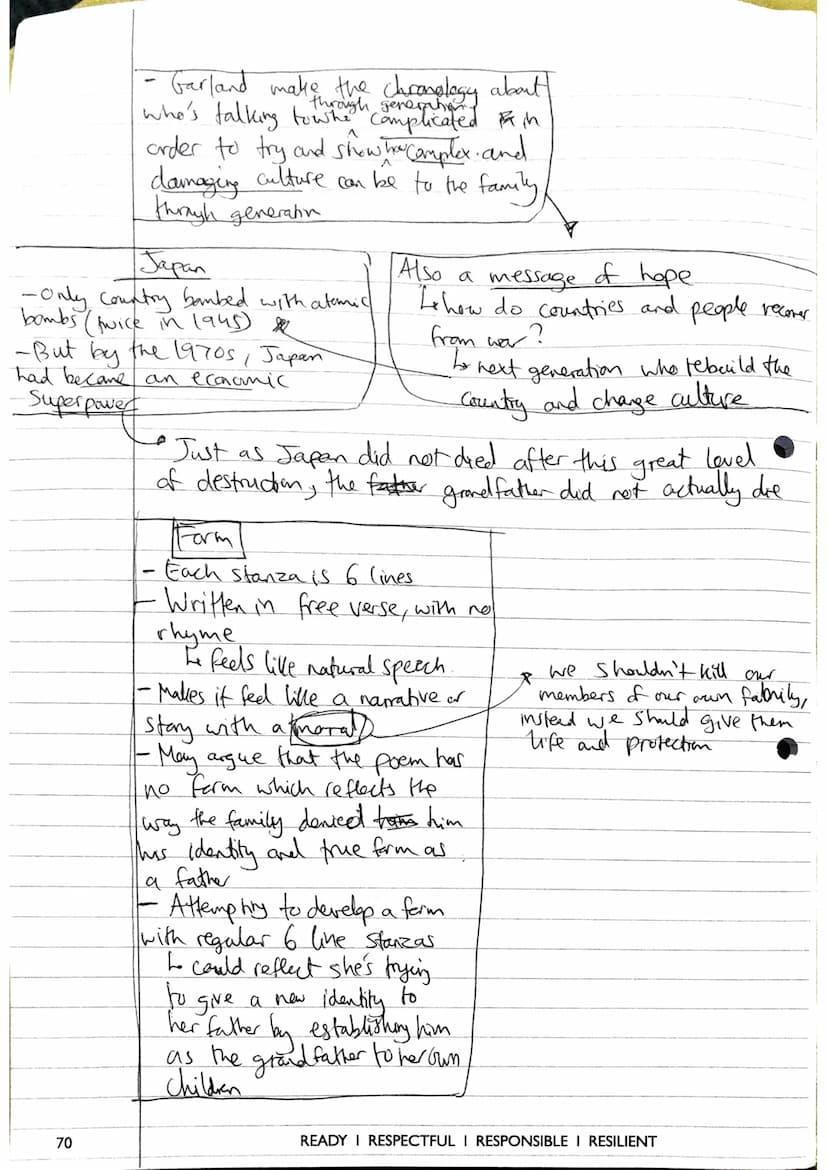 - Garland make the chronology about
who's talking to who through generations complicated in
order to try and show how complex and
damaging culture can be to the family
through generation
Japan
- Only country bombed with atomic
bombs (twice in 1945)
- But by the 1970s, Japan
had became an economic
superpower
Also a message of hope
↳ how do countries and people recover
from war?
↳ next generation who rebuild the
country and change culture
Just as Japan did not died after this great level
of destruction, the father grandfather did not actually die
Form
- Each stanza is 6 lines
- Written in free verse, with no
rhyme
↳ feels like natural speech.
- Makes it feel like a narrative or
story with a moral
- May argue that the poem has
no form which reflects the
way the family denied him
his identity and true form as
a father
- Attempting to develop a form
with regular 6 line stanzas
↳ could reflect she's trying
to give a new identity to
her father by establishing him
as the grandfather to her own
children
* we shouldn't kill our
members of our own family,
instead we should give them
life and protection
70
READY I RESPECTFUL I RESPONSIBLE I RESILIENT